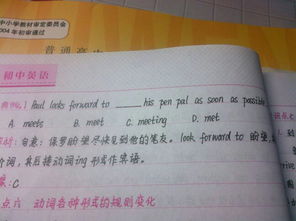 中小学教材审定委员会
2004年初审通过
普通高中
初中英语
典例.1 Paul looks forward to _____ his pen pal as soon as possible
A. meets B. meet C. meeting D. met
析: 句意: 保罗盼望尽快见到他的笔友。look forward to 的
介词，其后接动词ing形式作宾语。
案: C
点六 动词各种形式的规则变化